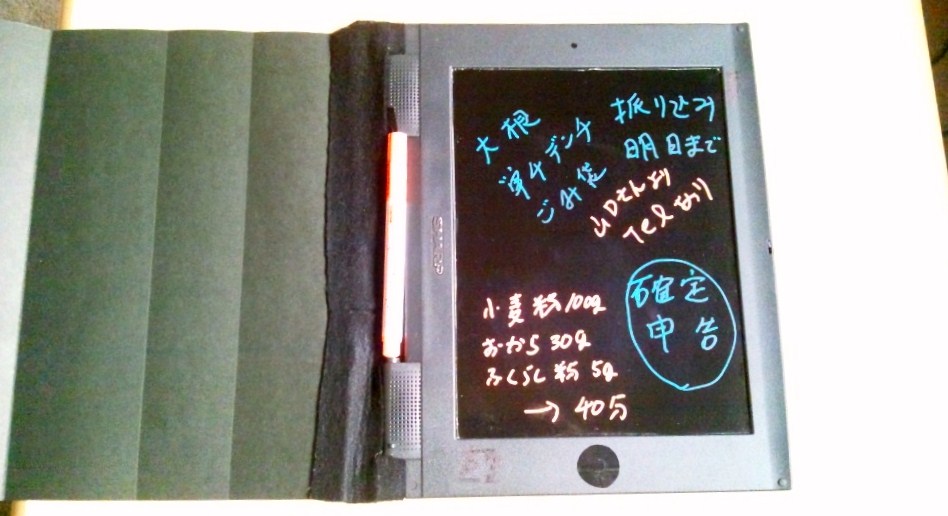 大根
単4デンチ
ごみ袋
振り込み
明日まで
山口さんより
Telあり
確定
申告
小麦粉100g
おから30g
ふくらし粉5g
→40分